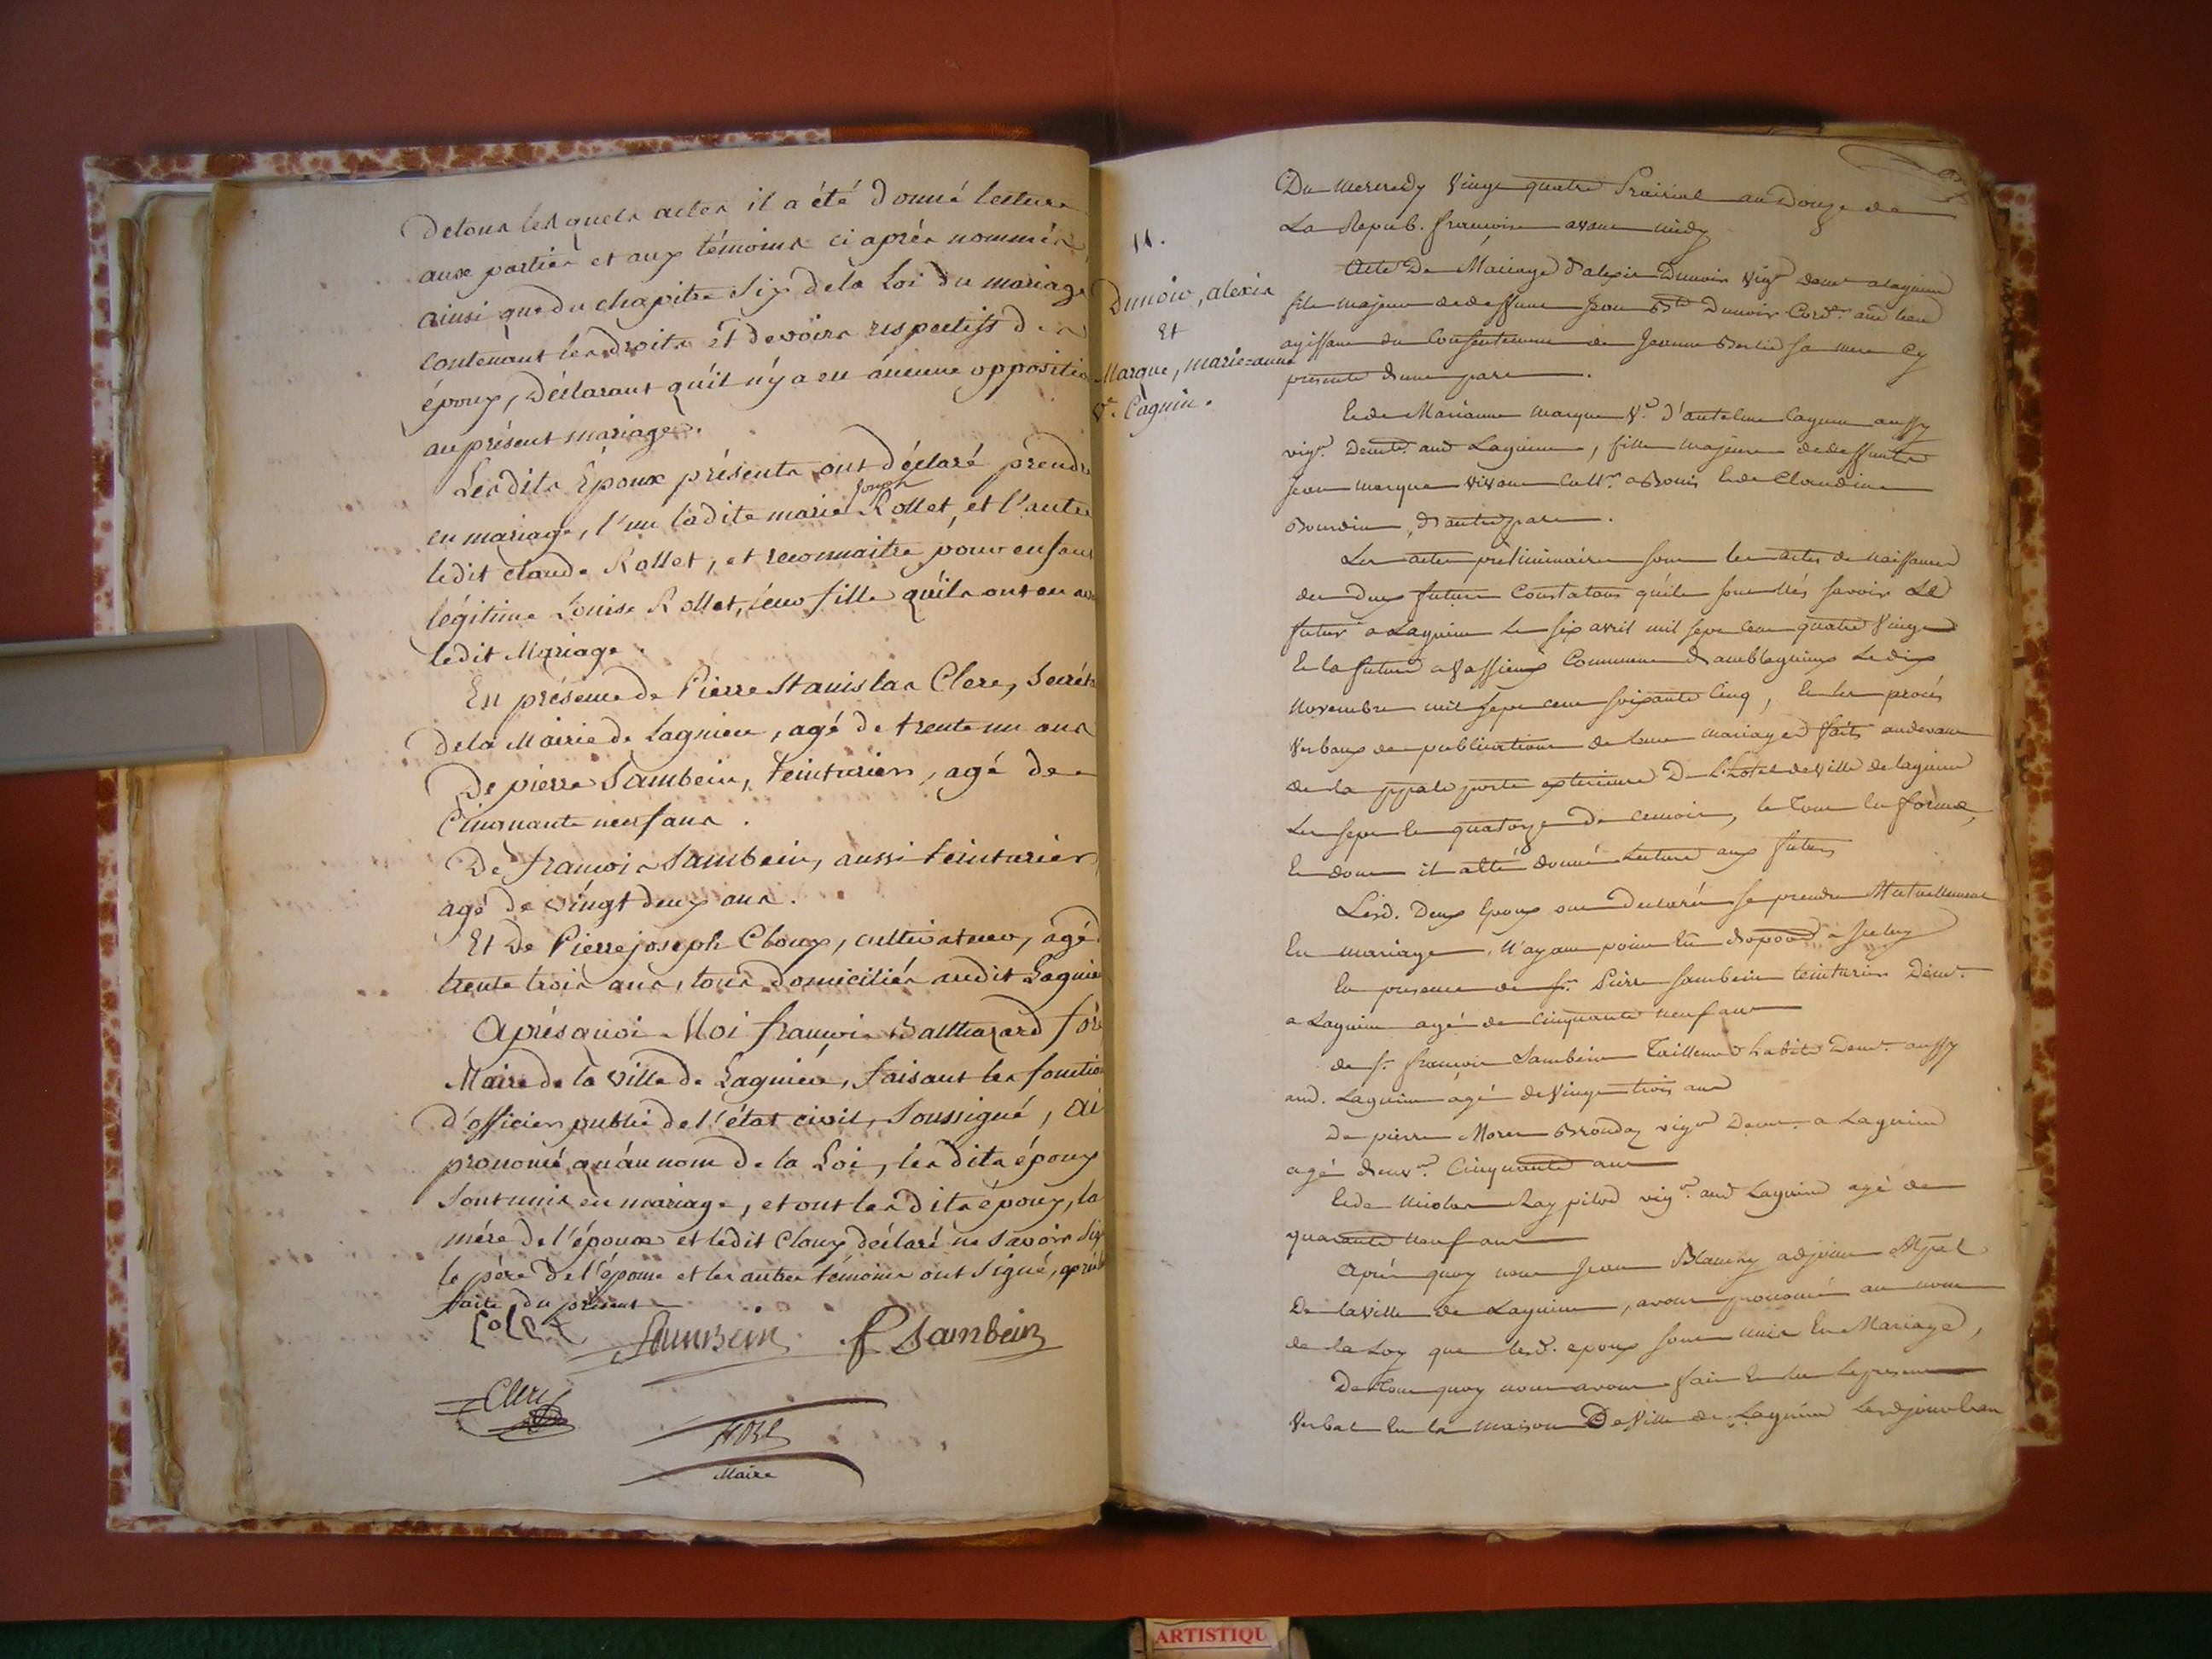 De tous lesquels actes il a été donné lecture
aux parties et aux témoins ci après nommés,
ainsi que du chapitre six de la Loi du mariage
contenant les droits et devoirs respectifs des
époux, déclarant qu'il n'y a eu aucune oppositio
au présent mariage.
Lesdits Époux présents ont déclaré prendre
en mariage, l'un ladite marie Joseph Rollet, et l'autre
ledit claude Rollet, et reconnaitre pour enfant
légitime Louise Rollet, leur fille qu'ils ont eu
ledit Mariage.
En présence de Pierre Stanislas Clerc, Secrét
de la Mairie de Lagnieu, agé de trente un ans
De pierre Sambein, teinturier, agé de
Cinquante neuf ans.
De françois Sambein, aussi teinturier,
agé de vingt deux ans.
Et De Pierre joseph Cloux, cultivateur, agé
trente trois ans, tous domiciliés audit Lagnieu
Après quoi Moi françois Balthazard
Maire de la ville de Lagnieu, faisant les fonctio
d'officier public de l'état civil, soussigné, ai
prononcé qu'au nom de la Loi, les dits époux
sont unis en mariage, et ont les dits époux, la
mère de l'époux et ledit Cloux déclaré ne savoir sig
le père de l'épouse et les autres témoins ont signé, après
faite du présent
Sambein f Sambein
Clerc
Maire
11.
Dunoir, alexis
Et
Marque, marie-anne
Ve. Cagnin.
Du Mercredy Vingt quatre Prairial an Douze de
La Repub. françoise avant midy
Acte De Mariage d'alexis Dunoir vigr demt a lagnieu
fils majeur de deffunt Jean Bte Dunoir Cordr. aud lieu
agissant du Consentement de Jeanne Berlié sa mere Cy
presente d'une part.
Et de Marianne marque Ve. d'antelme Cagnin aussy
vigr. demte. aud Lagnieu, fille majeure de deffunts
Jean marque vivant Cultr. a Bouis et de Claudine
Bourdin, d'autre part.
Les actes preliminaires sont les actes de Naissance
des Deux futurs Constatans qu'ils sont nés savoir Le
futur a Lagnieu le six avril mil sept cent quatre Vingt
et la future a Vassieux Commune d'amblagnieux Le dix
Novembre mil sept cent soixante Cinq, et les procès
Verbaux de publications de leur mariage faits audevant
de la ppale porte exterieure De L'hotel de Ville de lagnieu
Les sept et quatorze De ce mois, le tout en forme,
et dont il a été donné Lecture aux futurs
Lesd. Deux Epoux ont Declarés se prendre Mutuellement
En mariage, N'ayant point Eu d'oppod a Iceluy
En presence de sr. Pierre Sambein teinturier Demt.
a Lagnieu agé de Cinquante neuf ans
de sr. françois Sambein Tailleur d'habits Demt. aussy
aud. Lagnieu agé de Vingt trois ans
De pierre Morer Bronday vigr Demt. a Lagnieu
agé d'envn. Cinquante ans
Et de Nicolas Ray pilod vigr. aud Lagnieu agé de
quarante Neuf ans
Après quoy nous Jean adjoint Mpal
De la Ville de Lagnieu, avons prononcé au nom
de la Loy que lesd. epoux sont unis En Mariage,
De tout quoy nous avons fait et lu le present
Verbal En la maison De Ville de Lagnieu Lesd jour et an
ARTISTIQU